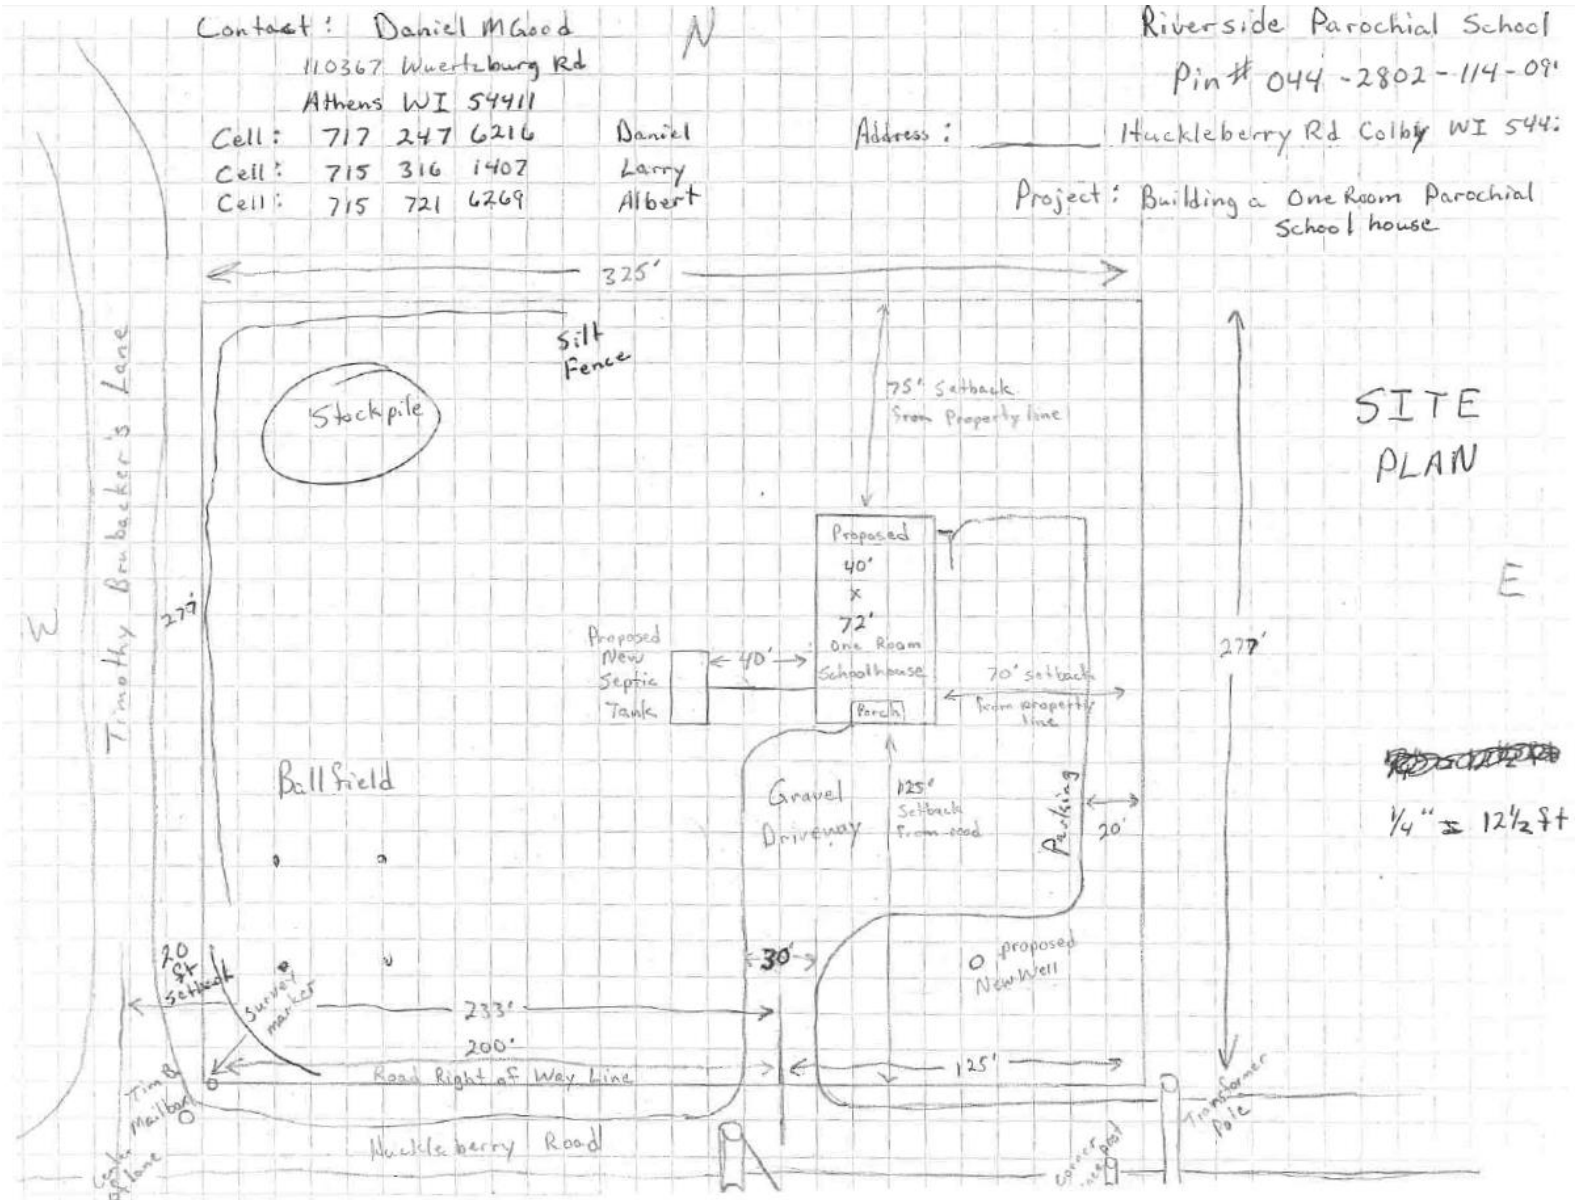 Contact: Daniel M Good
110367 Wuertzburg Rd
Athens WI 54411
Cell: 717 247 6216 Daniel
Cell: 715 316 1407 Larry
Cell: 715 721 6269 Albert
N
Riverside Parochial School
Pin# 044-2802-114-09
Address: Huckleberry Rd Colby WI 544
Project: Building a One Room Parochial
School house
325'
Silt
Fence
Stockpile
75' Setback
from Property line
SITE
PLAN
Timothy Brubacker's Lane
W
E
277'
277'
Proposed
40'
x
72'
One Room
Schoolhouse
Porch
Proposed
New
Septic
Tank
40'
70' setback
from property
line
Ballfield
Gravel
Driveway
125'
Setback
from road
Parking
20'
1/4" = 12 1/2 ft
20
ft
Setback
Survey
marker
30'
proposed
New Well
233'
200'
125'
Road Right of Way Line
Tim B
Mailbox
Huckleberry Road
Center
of lane
Corner
Transformer
Pole